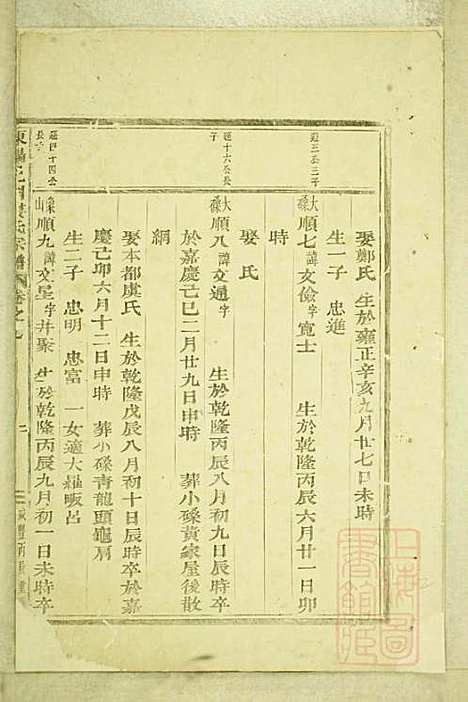 娶鄭氏 生於雍正辛亥九月廿七日未時
生一子 忠進
遊三公三子
大磉 順七 諱文儉字寬士 生於乾隆丙辰六月廿一日卯
時
娶氏
遊十六公長子
大磉 順八 諱文通字 生於乾隆丙辰八月初九日辰時卒
於嘉慶己巳二月廿九日申時 葬小磉黃家屋後散
網
娶本都虞氏 生於乾隆戊辰八月初十日辰時卒於嘉
慶己卯六月十二日申時 葬小磉青龍頭龜肩
生二子 忠明 忠富 一女適大疆畈呂
四十四公長子
山 順九 諱文星字井聚 生於乾隆丙辰九月初一日未時卒
東陽 宗譜 卷之七 二
上海圖書館藏